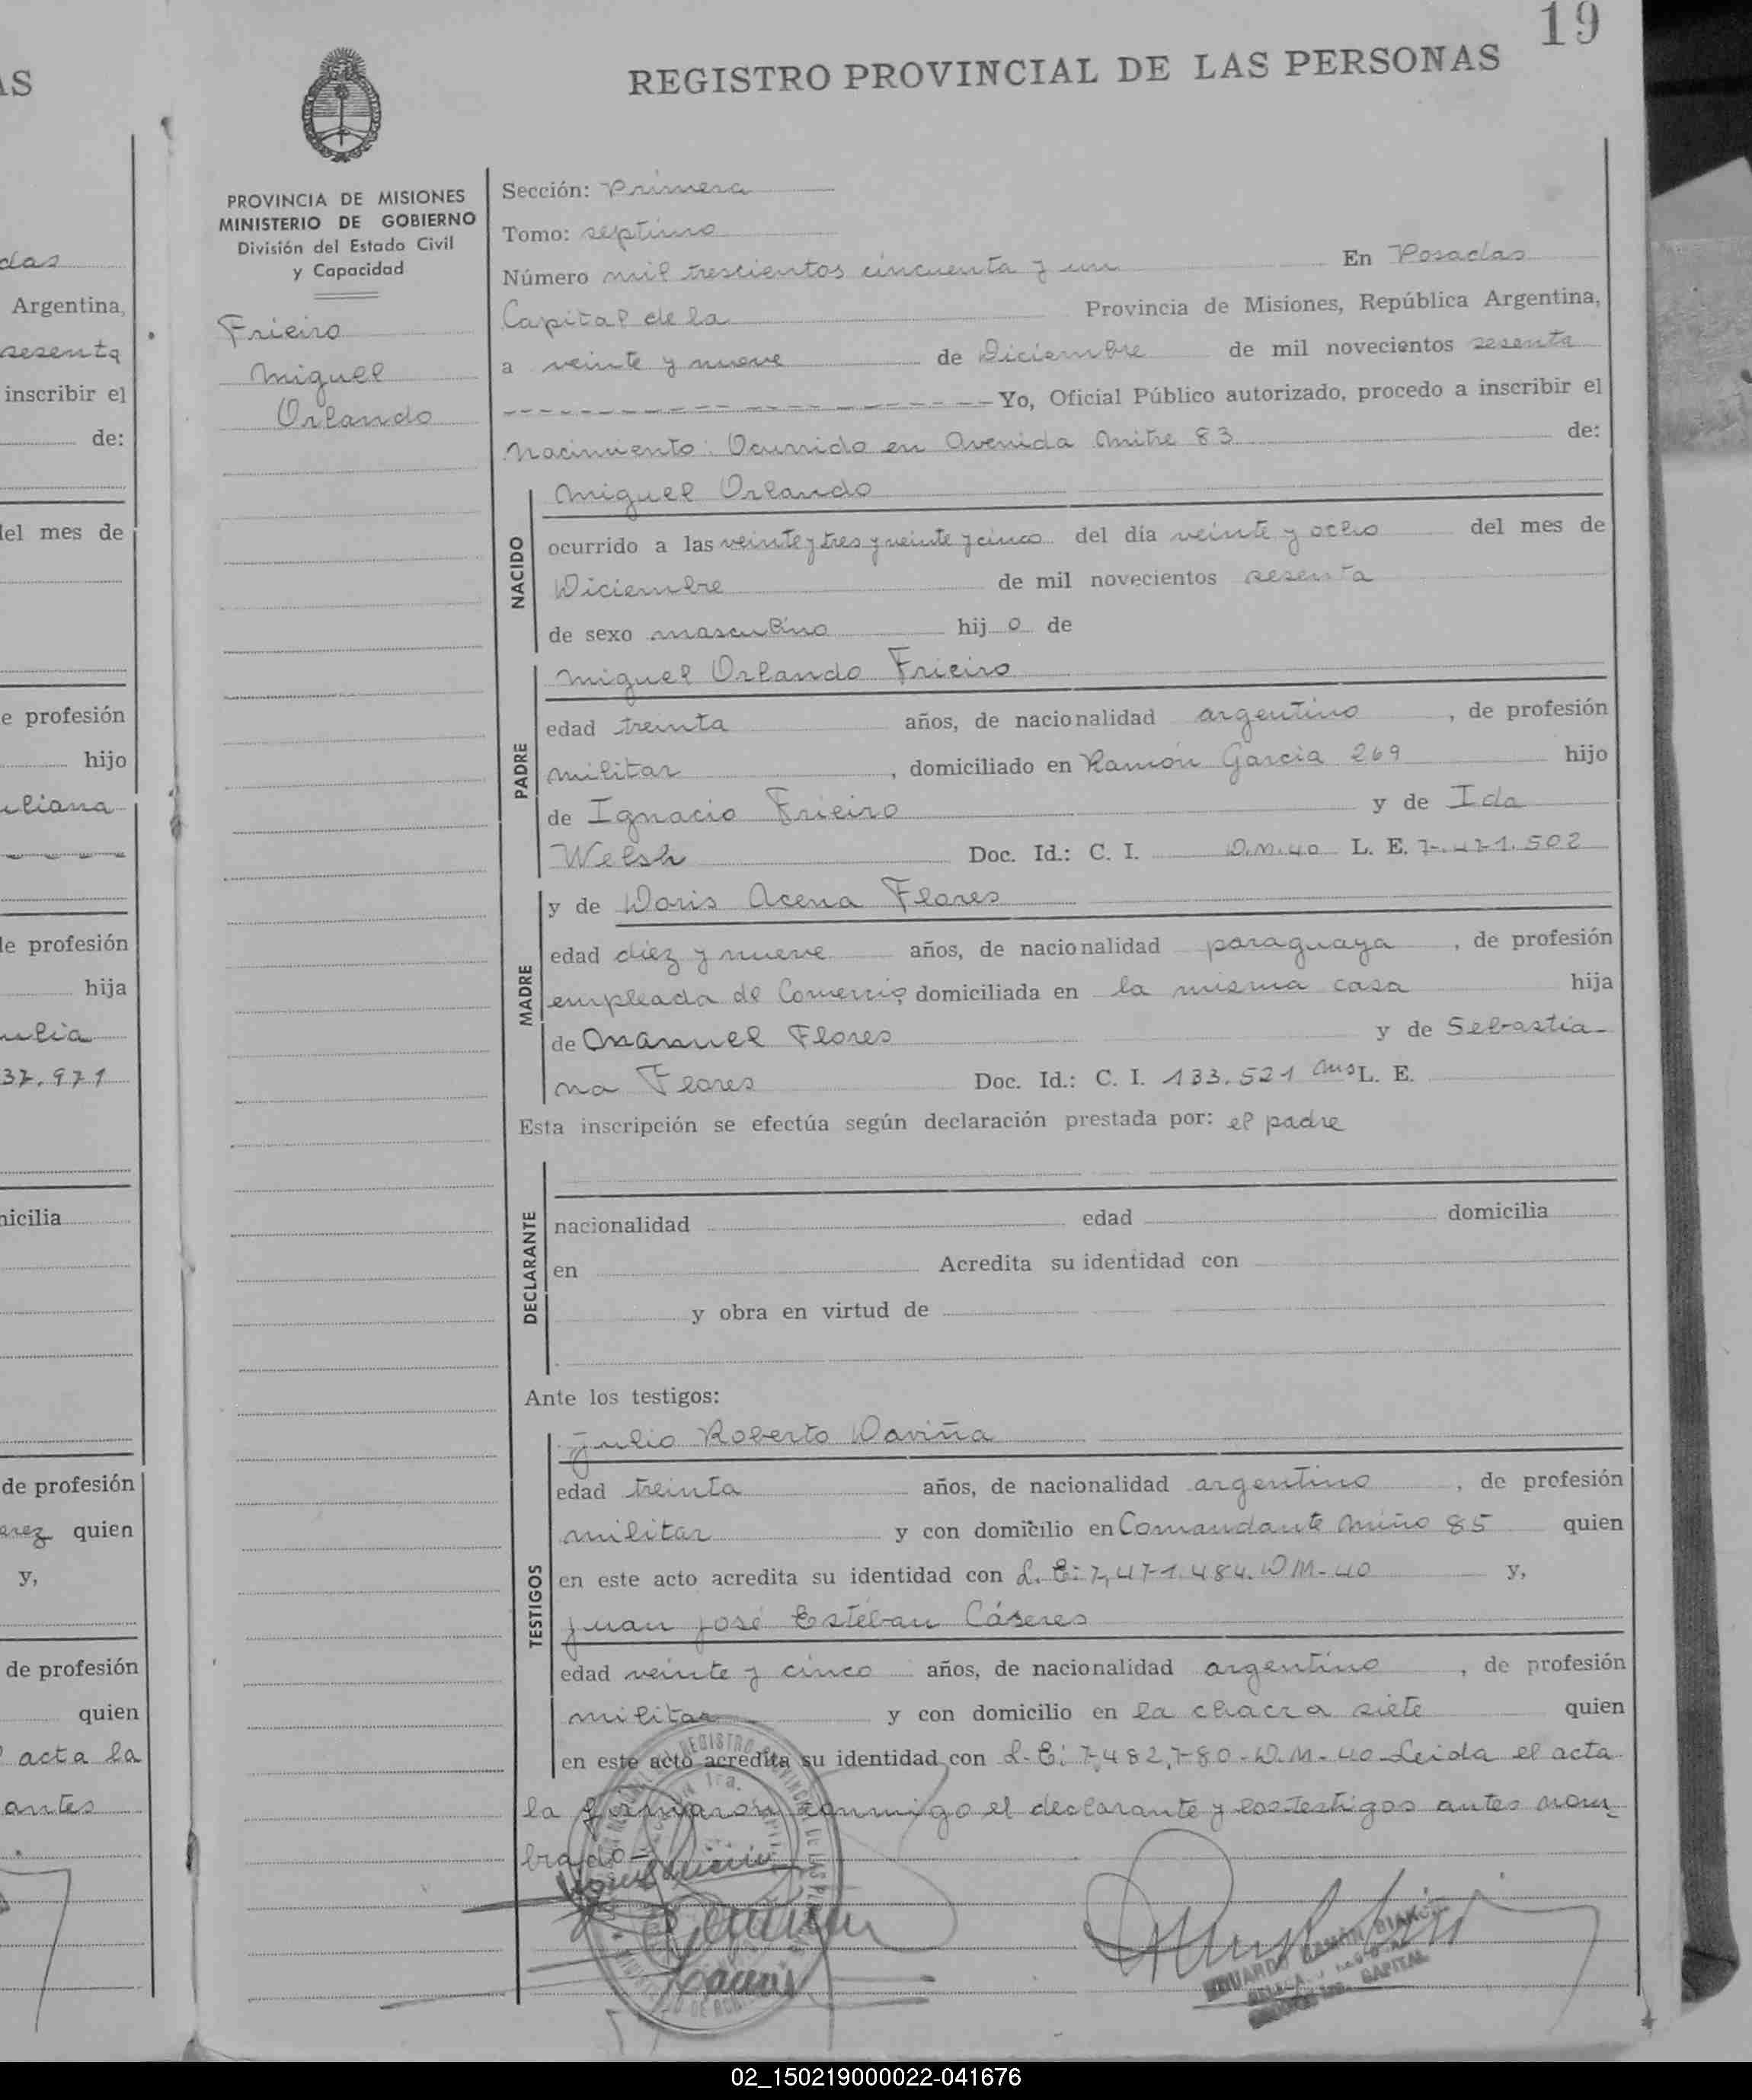 19
REGISTRO PROVINCIAL DE LAS PERSONAS
PROVINCIA DE MISIONES
MINISTERIO DE GOBIERNO
División del Estado Civil
y Capacidad
Frieiro
Miguel
Orlando
Sección: Primera
Tomo: septimo
Número mil trescientos cincuenta y un En Posadas
Capital de la Provincia de Misiones, República Argentina,
a veinte y nueve de Diciembre de mil novecientos sesenta
Yo, Oficial Público autorizado, procedo a inscribir el
Nacimiento: Ocurrido en Avenida Mitre 83 de:
NACIDO
Miguel Orlando
ocurrido a las veinte y tres y veinte y cinco del día veinte y ocho del mes de
Diciembre de mil novecientos sesenta
de sexo masculino hijo de
PADRE
Miguel Orlando Frieiro
edad treinta años, de nacionalidad argentino, de profesión
militar, domiciliado en Ramón García 269 hijo
de Ignacio Frieiro y de Ida
Welsh Doc. Id.: C. I. D.M.40 L. E. 7.471.502
MADRE
y de Doris Acena Flores
edad diez y nueve años, de nacionalidad paraguaya, de profesión
empleada de Comercio, domiciliada en la misma casa hija
de Manuel Flores y de Sebastia-
na Flores Doc. Id.: C. I. 133.521 Mns L. E.
Esta inscripción se efectúa según declaración prestada por: el padre
DECLARANTE
nacionalidad edad domicilia
en Acredita su identidad con
y obra en virtud de
Ante los testigos:
TESTIGOS
Julio Roberto Daviña
edad treinta años, de nacionalidad argentino, de profesión
militar y con domicilio en Comandante Miño 85 quien
en este acto acredita su identidad con L. E: 7,471.484. D M-40 y,
Juan José Estéban Cáseres
edad veinte y cinco años, de nacionalidad argentino, de profesión
militar y con domicilio en la chacra siete quien
en este acto acredita su identidad con L. E: 7,482,780-D.M-40-Leida el acta
la firmaron conmigo el declarante y los testigos antes nom-
brado-
EDUARDO RAMÓN
CAPITAL
AS
das
Argentina,
sesenta
inscribir el
de:
del mes de
e profesión
hijo
uliana
de profesión
hija
ulia
37.971
nicilia
de profesión
erez quien
y,
de profesión
quien
acta la
antes
02_150219000022-041676